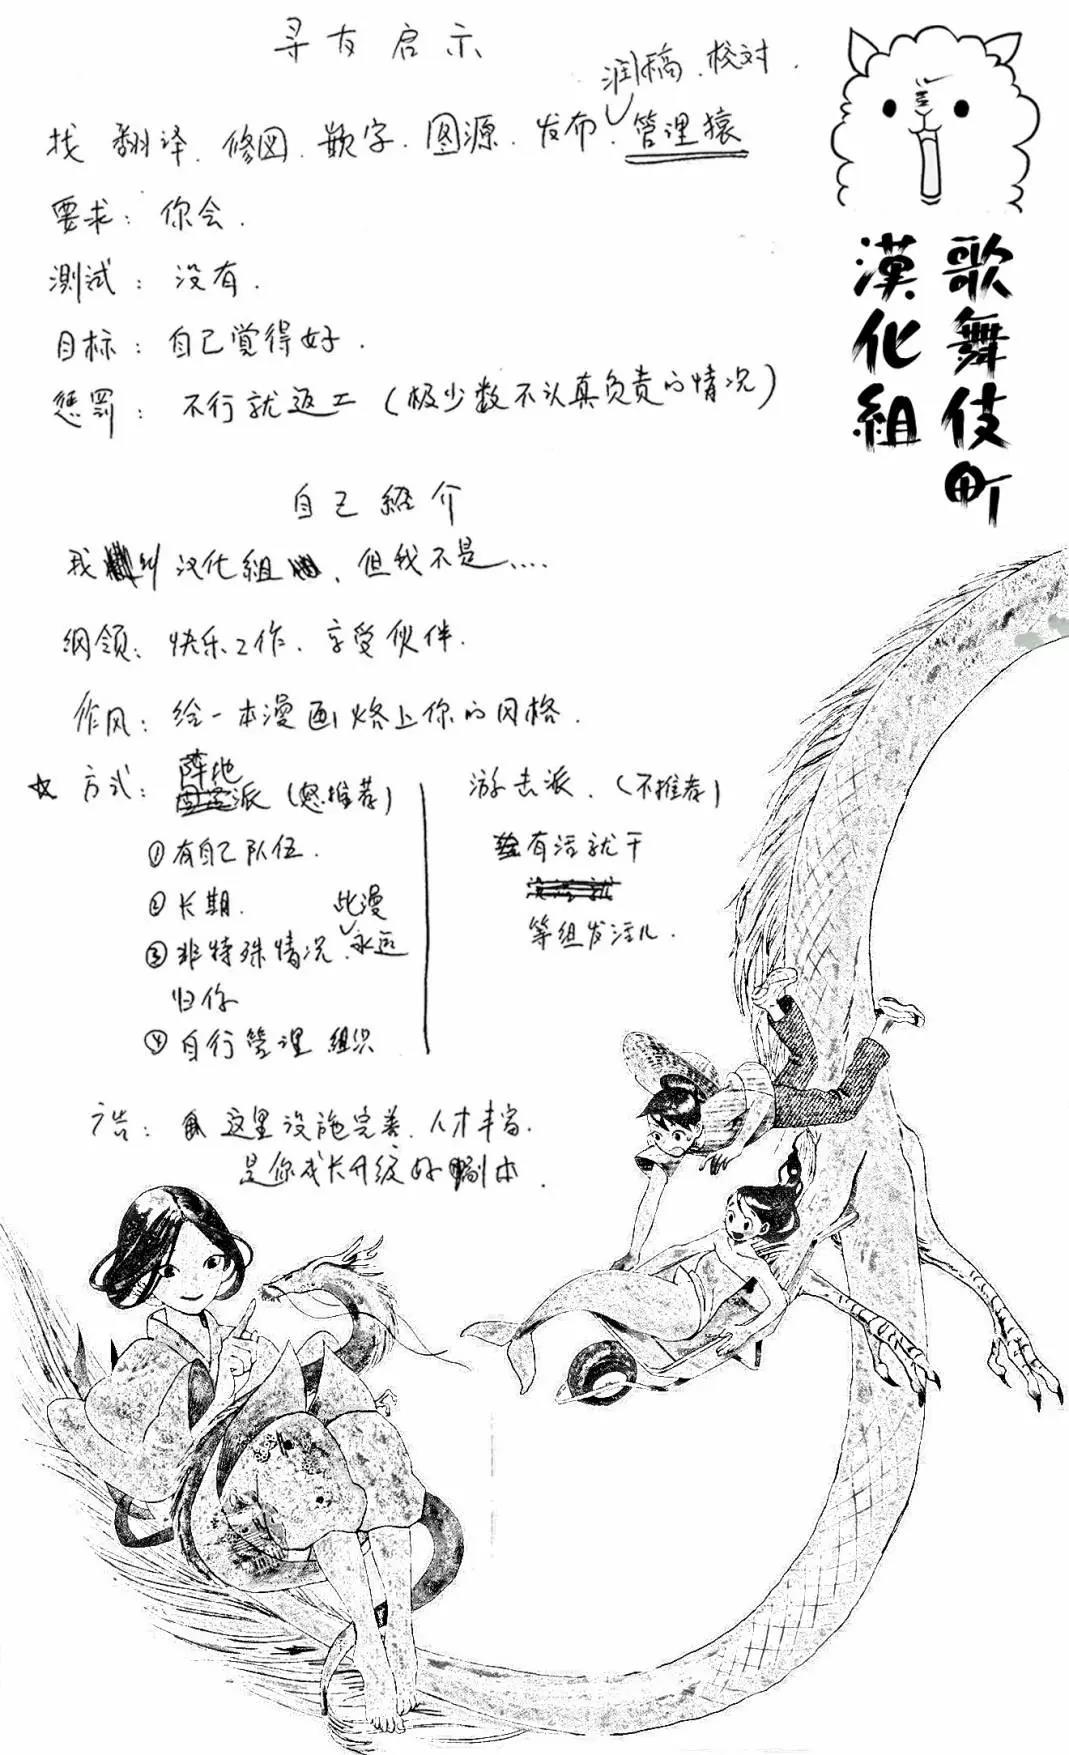 寻友启示
润稿、校对、
找 翻译、修图、嵌字、图源、发布、管理猿
要求：你会.
测试：没有.
目标：自己觉得好.
惩罚：不行就返工（极少数不认真负责的情况）
歌舞伎町
漢化組
自己紹介
我叫汉化组，但我不是....
纲领：快乐工作、享受伙伴.
作风：给一本漫画烙上你的风格.
☆ 方式：阵地派（很推荐）
①有自己队伍.
②长期.
③非特殊情况、此漫永远
归你
④自行管理组织
游击派.（不推荐）
有活就干
等组发活儿.
广告：这里设施完善、人才丰富.
是你成长升级好副本.